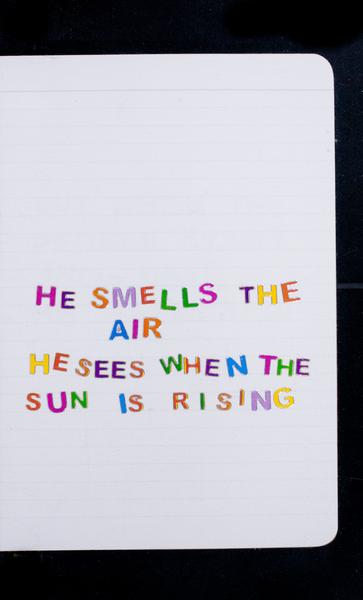 HE SMELLS THE
AIR
HE SEES WHEN THE
SUN IS RISING